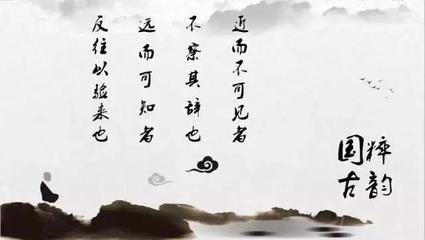 近而不可见者
不察其辞也
远而可知者
反往以验来也
国粹
古韵